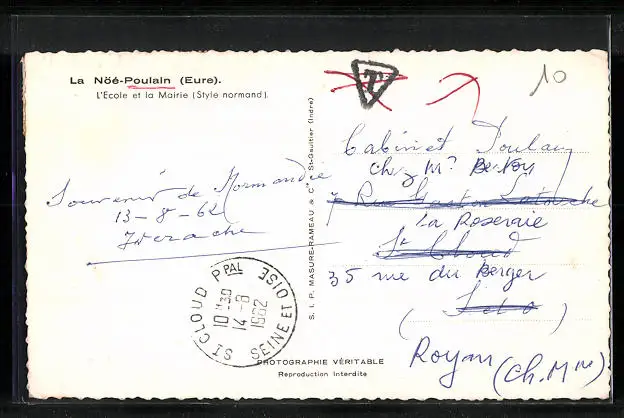 La Nöé-Poulain (Eure).
L'Ecole et la Mairie (Style normand).
T
10
Souvenir de Normandie
13-8-62
S. I. P. MASURE-RAMEAU & Cie St-Gaultier (Indre)
Cabinet Poulain
chez Mr
7 Rue Gaston Latouche
la Roseraie
St Cloud
35 rue du Berger
S & O
Royan (Ch. Mme)
ST CLOUD PPAL
10H30
14-8
1962
SEINE ET OISE
PHOTOGRAPHIE VÉRITABLE
Reproduction Interdite